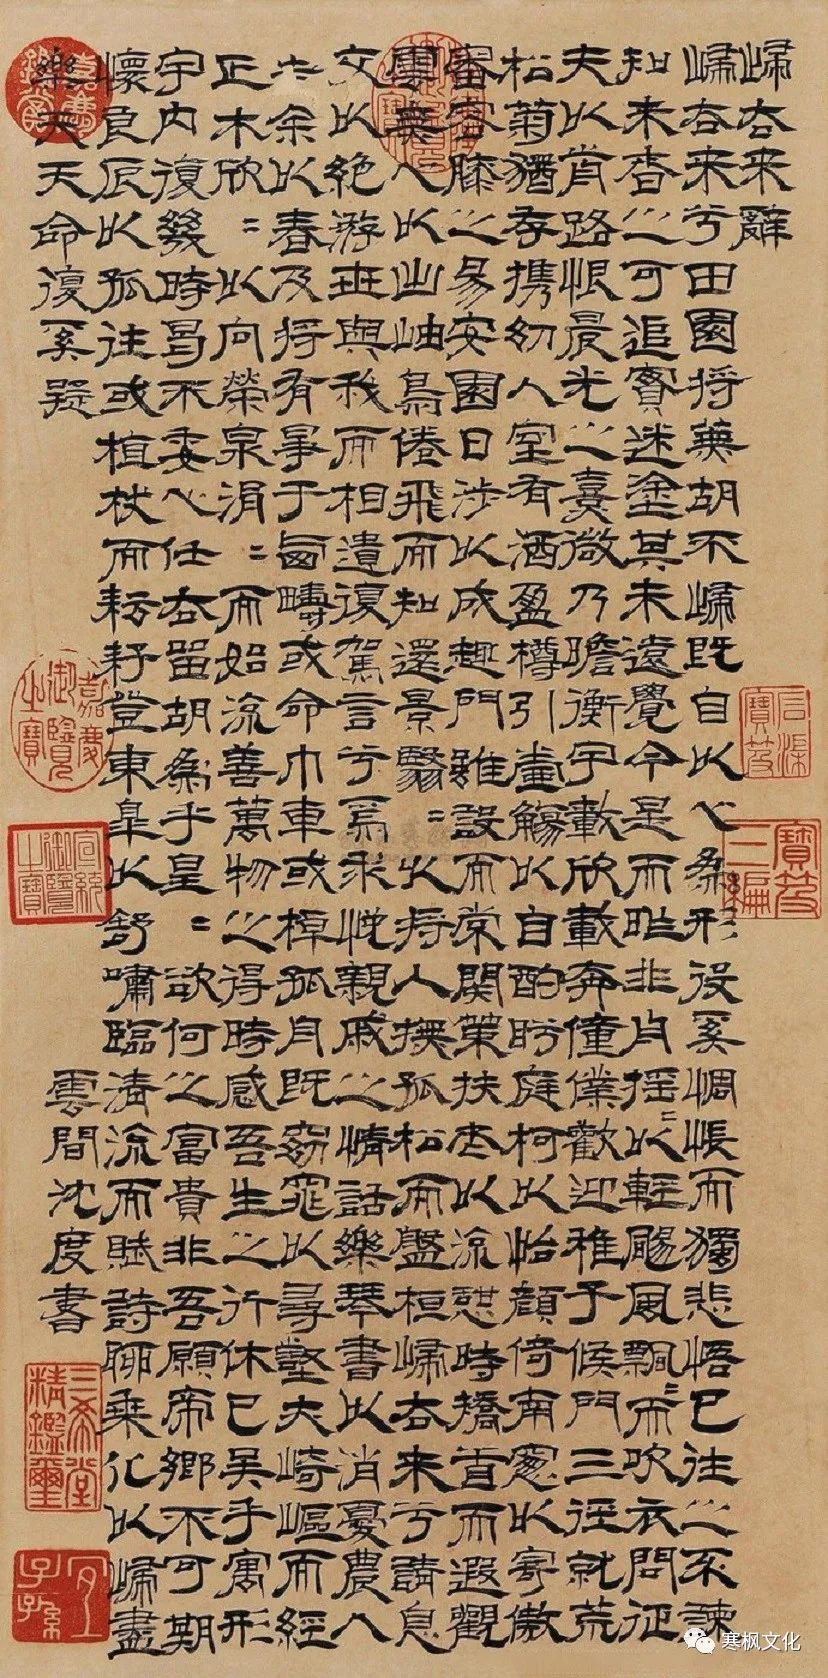 歸去来辭
歸去来兮田園将蕪胡不歸既自以心為形役奚惆悵而獨悲悟已往之不諫
知来者之可追實迷塗其未遠覺今是而昨非舟摇〻以輕颺風飄〻而吹衣問征
夫以前路恨晨光之熹微乃瞻衡宇載欣載奔僮僕歡迎稚子候門三徑就荒
松菊猶存携幼入室有酒盈樽引壺觴以自酌眄庭柯以怡顔倚南窓以寄傲
審容膝之易安園日涉以成趣門雖設而常關策扶老以流憩時矯首而遐觀
雲無心以出岫鳥倦飛而知還景翳〻以将入撫孤松而盤桓歸去来兮請息
交以絶游世與我而相遺復駕言兮焉求悦親戚之情話樂琴書以消憂農人
告余以春及将有事于西疇或命巾車或棹孤舟既窈窕以尋壑亦崎嶇而經
丘木欣〻以向榮泉涓〻而始流善萬物之得時感吾生之行休已矣乎寓形
宇内復幾時曷不委心任去留胡為乎皇〻欲何之富貴非吾願帝鄉不可期
懷良辰以孤往或植杖而耘耔登東皋以舒嘯臨清流而賦詩聊乗化以歸盡
樂夫天命復奚疑
雲間沈度書
石渠寶笈
寶笈三編
嘉慶御覽之寶
宣統御覽之寶
三希堂精鑑璽
宜子孫
寒枫文化